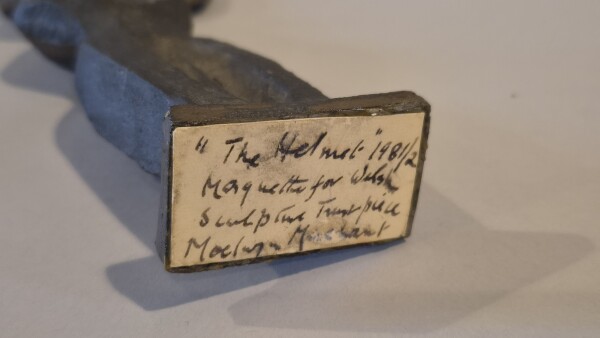 "The Helmet" 1981/2
Maquette for Welsh
Sculpture Trust piece
Moelwyn Merchant